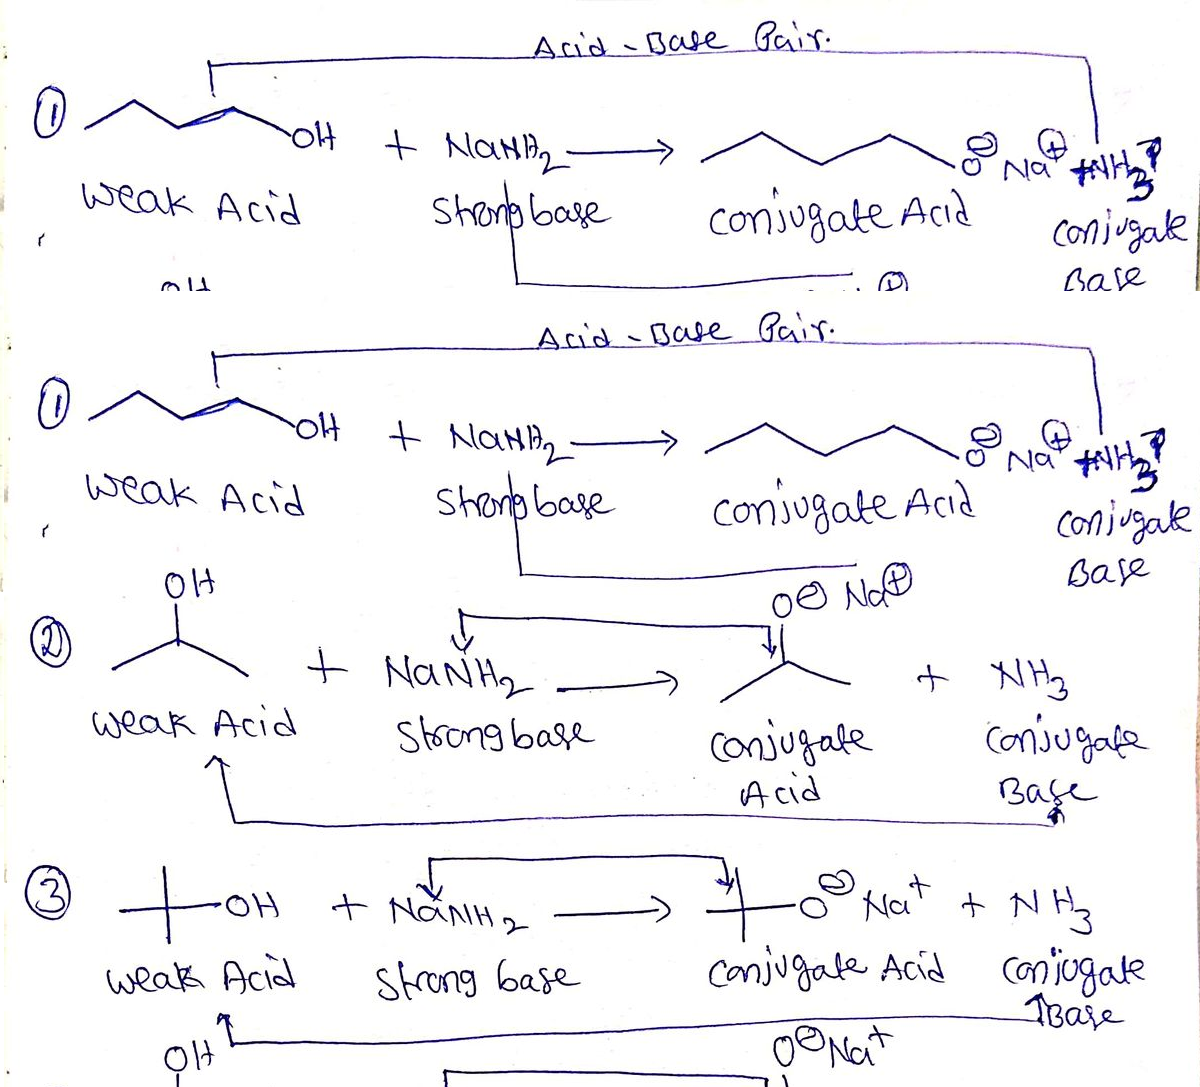 Acid - Base Pair.
① OH + NaNH2 → O⊖ Na⊕ + NH3
Weak Acid Strong base conjugate Acid conjugate
Base
OH
Acid - Base Pair.
① OH + NaNH2 → O⊖ Na⊕ + NH3
Weak Acid Strong base conjugate Acid conjugate
Base
OH O⊖ Na⊕
② + NaNH2 → + NH3
weak Acid Strong base conjugate conjugate
Acid Base
③ OH + NaNH2 → O⊖ Na+ + NH3
weak Acid Strong base conjugate Acid conjugate
Base
OH O⊖Na+